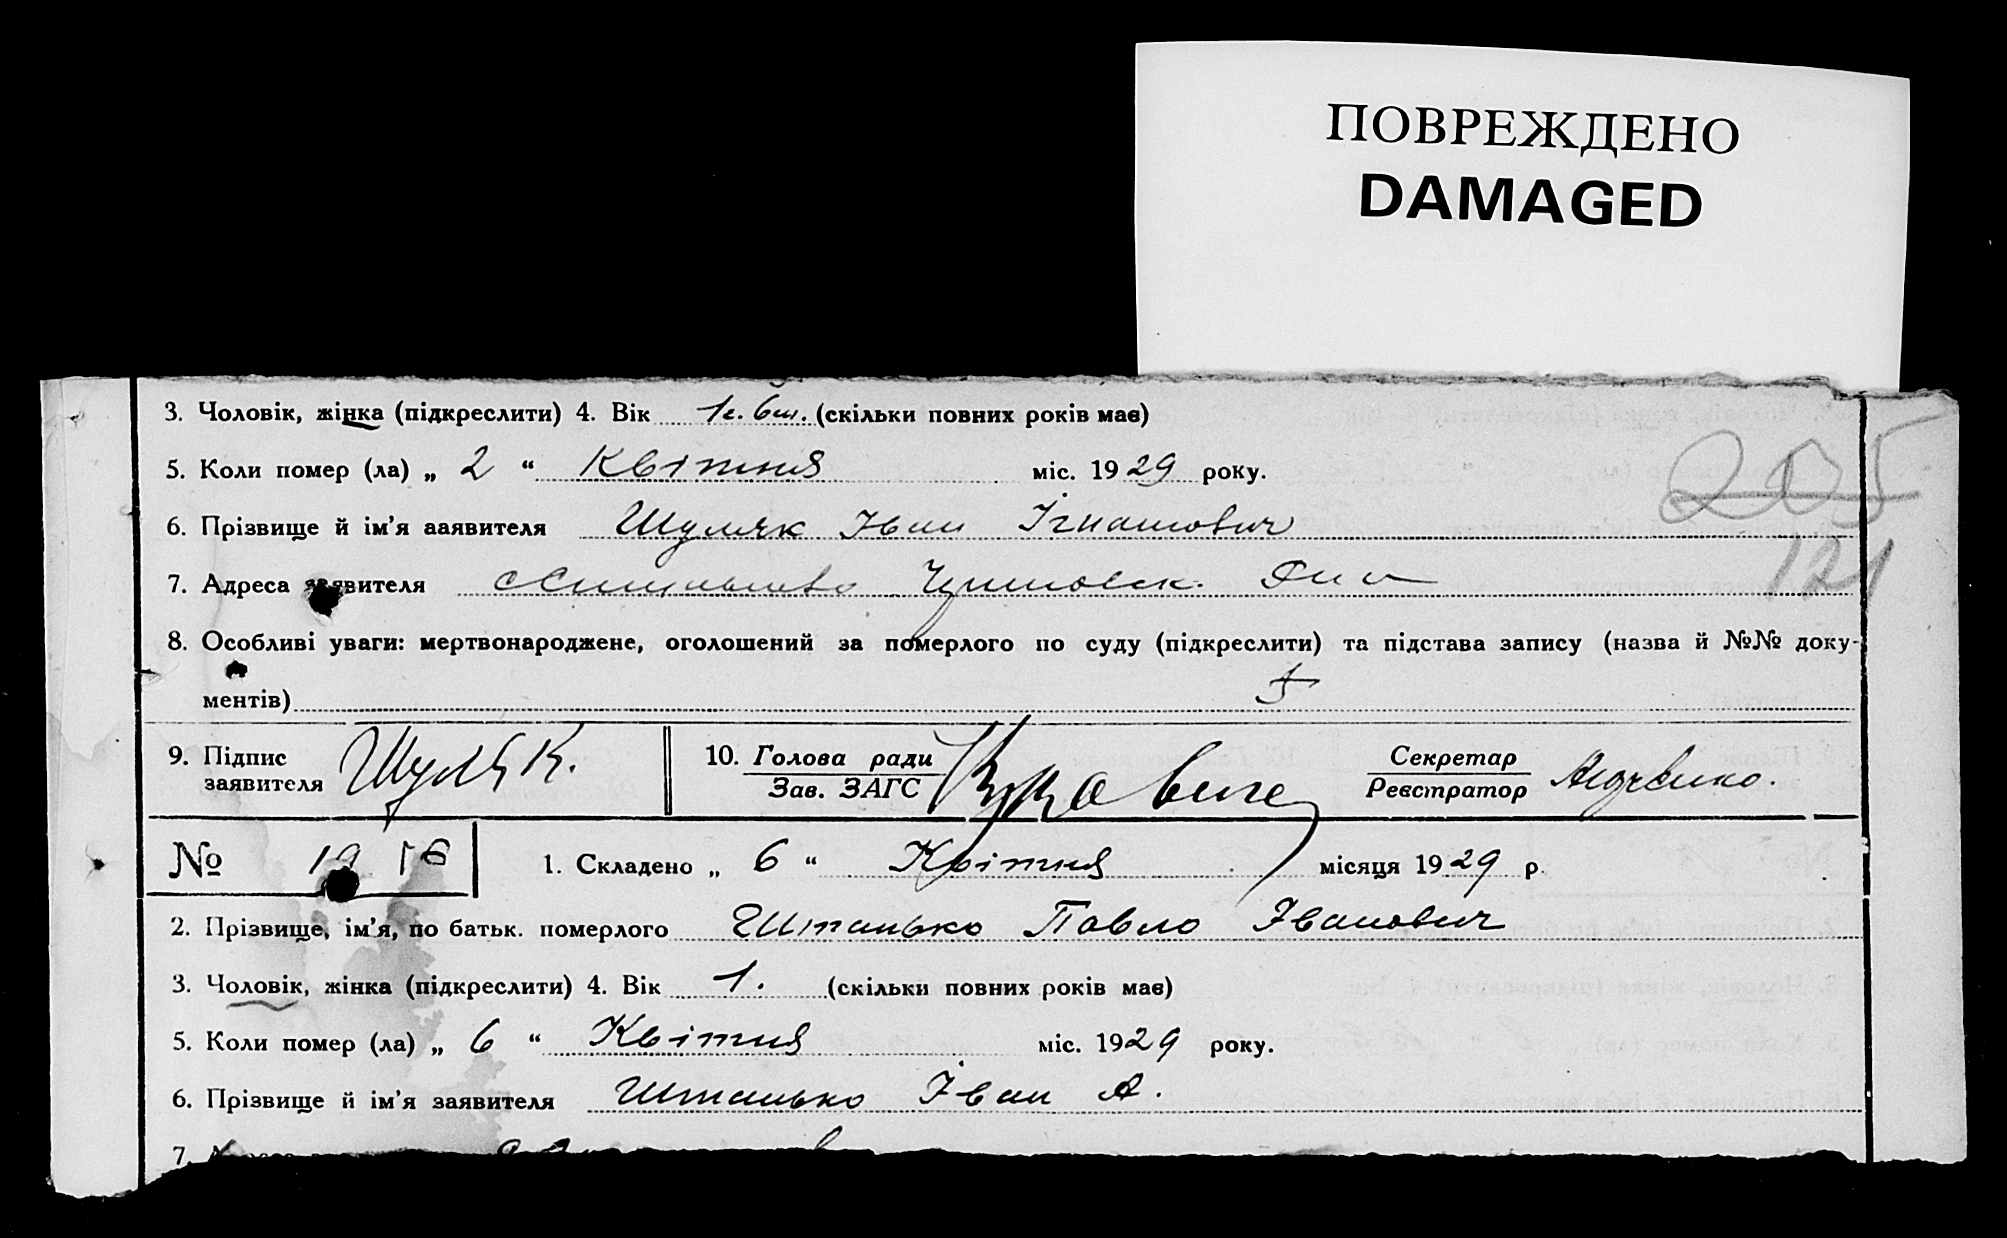 ПОВРЕЖДЕНО
DAMAGED
3. Чоловік, жінка (підкреслити) 4. Вік 1г. 6м. (скільки повних років має)
5. Коли помер (ла) „ 2 “ Квітня міс. 1929 року.
205
6. Прізвище й ім’я заявителя Шуляк Іван Ігнатович
121
7. Адреса заявителя
8. Особливі уваги: мертвонароджене, оголошений за померлого по суду (підкреслити) та підстава запису (назва й №№ доку-
ментів)
9. Підпис заявителя Шуляк. 10. Голова ради Зав. ЗАГС Секретар Реєстратор
№ 1. Складено „ 6 “ Квітня місяця 1929 р.
2. Прізвище, ім’я, по батьк. померлого Штанько Павло Іванович
3. Чоловік, жінка (підкреслити) 4. Вік 1. (скільки повних років має)
5. Коли помер (ла) „ 6 “ Квітня міс. 1929 року.
6. Прізвище й ім’я заявителя Штанько Іван А.
7.